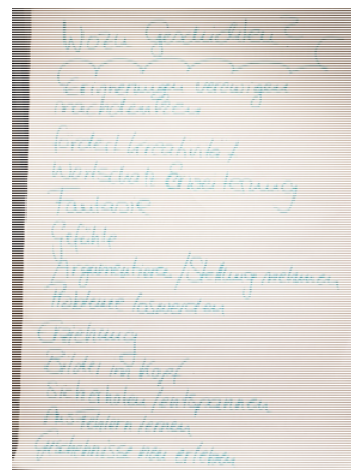 Wozu Geschichten?
Erinnerungen verewigen
nachdenken
fördert Kreativität /
Wortschatz Erweiterung
Fantasie
Gefühle
Argumentieren / Stellung nehmen
Probleme loswerden
Erziehung
Bilder im Kopf
Sich erholen / entspannen
Aus Fehlern lernen
Geschehnisse neu erleben